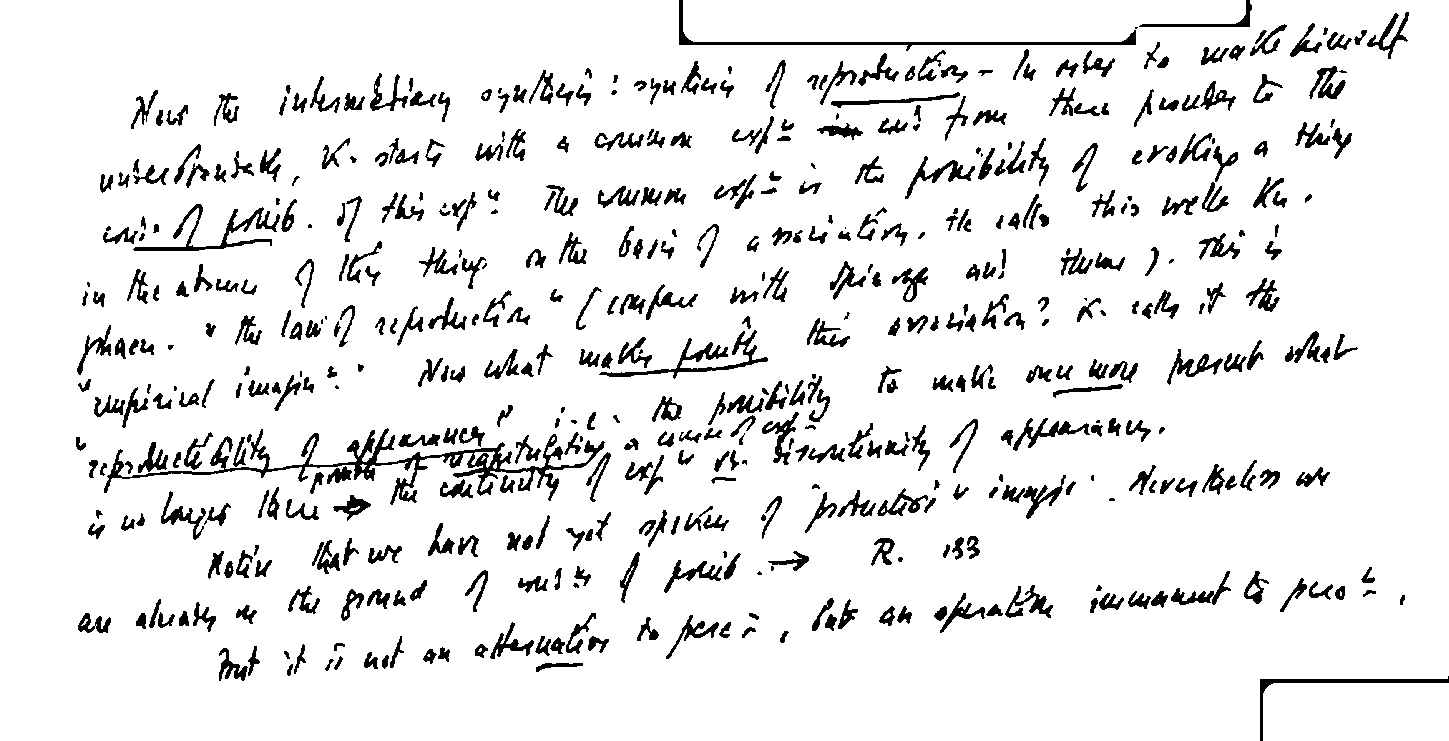 Now the intermediary synthesis : synthesis of reproduction – In order to make himself
understandable, K. starts with a common expce and from there proceeds to the
condns of possib. of this expce. The common expce is the possibility of evoking a thing
in the absence of this thing on the basis of association. He calls this well Kn.
phaen. " the law of reproduction " (compare with Spinoza and Hume). This is
"empirical imagion". Now what makes possible this association? K. calls it the
"reproductibility of appearances" i.e. the possibility to make once more present what
power of recapitulating a course of expce
is no longer there → the continuity of expce vs. discontinuity of appearances.
Notice that we have not yet spoken of "productive" imagion. Nevertheless we
are already on the ground of condns of possib. → R. 133
But it is not an alternation to percn, but an operation immanent to percn.